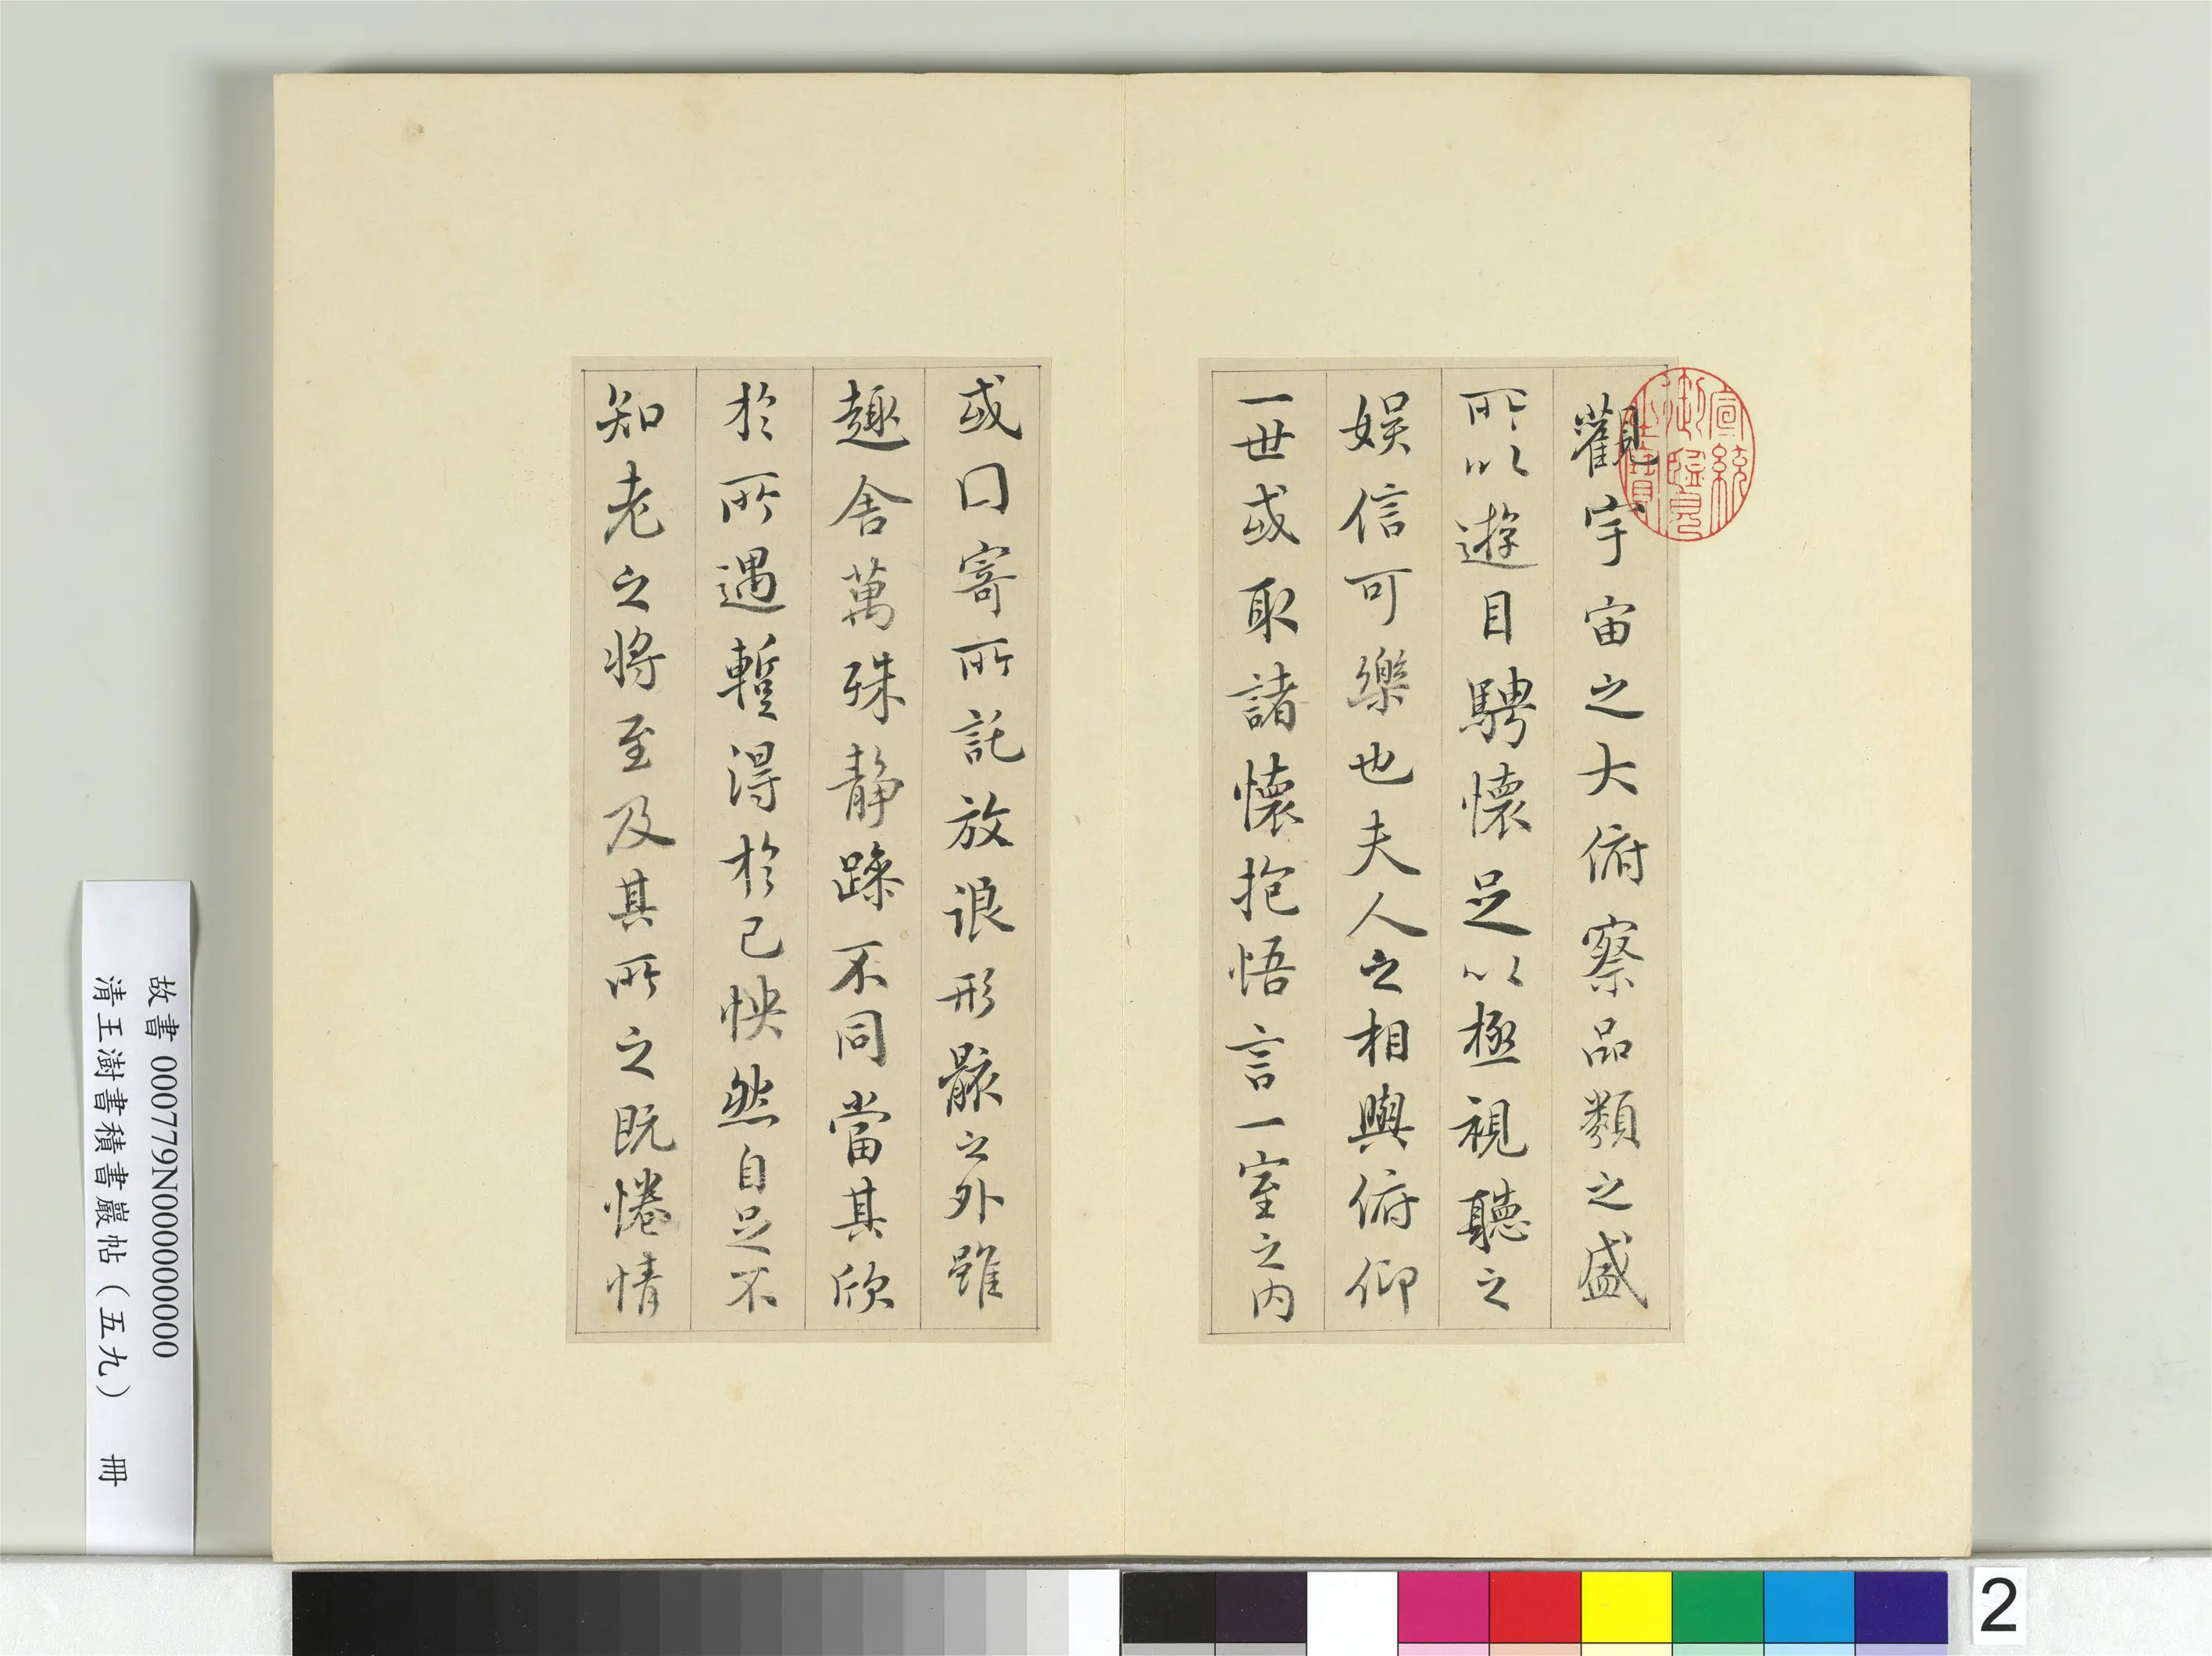 觀宇宙之大俯察品類之盛
所以遊目騁懷足以極視聽之
娛信可樂也夫人之相與俯仰
一世或取諸懷抱悟言一室之内
或曰寄所託放浪形骸之外雖
趣舍萬殊静躁不同當其欣
於所遇暫得於己怏然自足不
知老之將至及其所之既惓情
宣統御覽之寶
故書 000779N000000000
清王澍書積書巖帖（五九） 冊
2